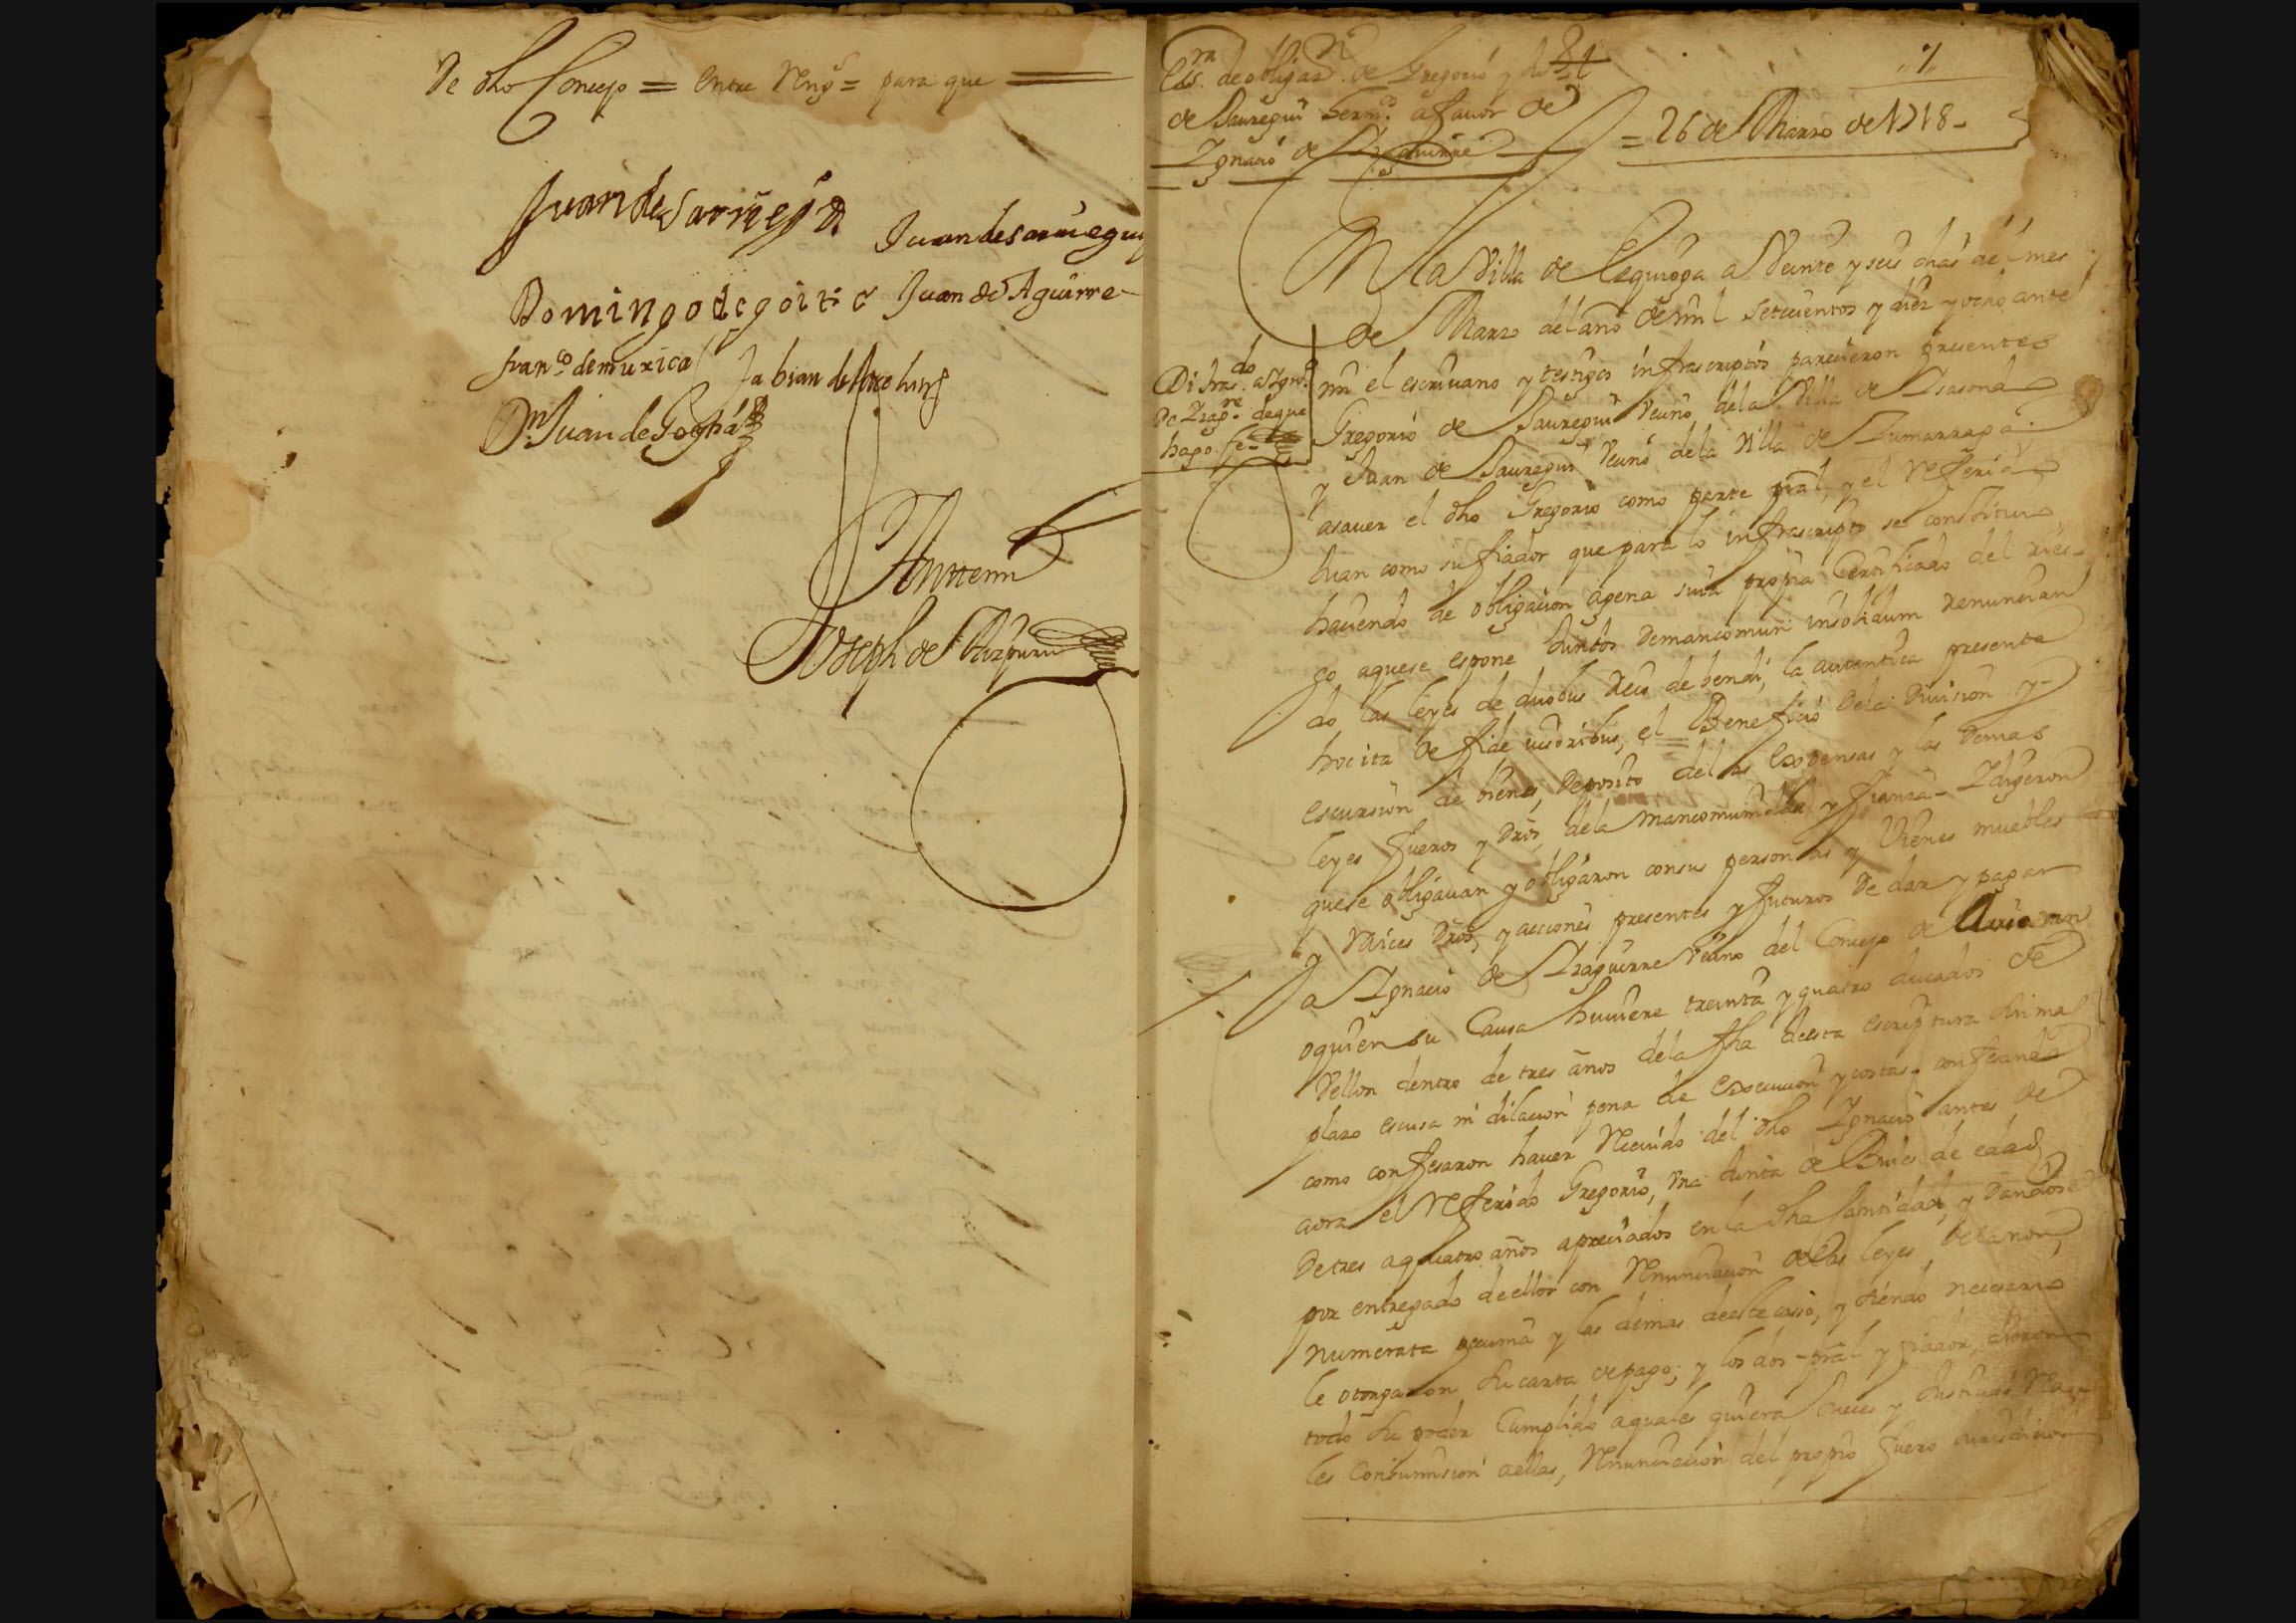 De dho Concejo = entre Reng.s = para que =
Juan de Sarriegui
Juan de sarriegui
Domingo de goitia Juan de Aguirre
Fran.co de muxica
Dn Juan de
Ante mi
Joseph de Aizpuru
Ess.ra de obligaz.on de Gregorio y Ju.o
de Jauregui herm.s a favor de
Ignacio de Izaguirre
7
= 26 de Marzo de 1718 -
En la Villa de Legazpia a Veinte y seis dias del mes
de Marzo del año de mil setecientos y diez y ocho ante
mi el escriuano y testigos infrascriptos parecieron presentes
Gregorio de Jauregui Vecino dela Villa de Isasondo
y Juan de Jauregui Vecino dela Villa de Zumarraga;
asauer el dho Gregorio como parte pral, y el Referido
Juan como su fiador que para lo infrascripto se constituio,
hauiendo de obligacion agena suia propia Certificado del ries-
go aquese espone Juntos demancomun insolidum renuncian
do las leyes de duobus Reis debendi, la autentica presente
hocita de fide iusoribus, el Beneficio dela diuision y
escursion de bienes, deposito delas Expensas y las demas
leyes fueros y dros, dela mancomunidad y fianza - Y digeron
quese obligauan y obligaron consus personas y Vienes muebles
y Raices dros, y acciones presentes y futuros De dar y pagar
a Ignacio de Izaguirre Vecino del Concejo de
oquien su Causa huuiere treinta y quatro ducados de
Vellon dentro de tres años dela fha deesta escriptura sin mas
plazo escusa ni dilacion pena de Execucion y costas; confesando
como confesaron hauer Reciuido del dho Ignacio antes de
aora el Referido Gregorio, Vna Junta de Bues de edad
De tres aquatro años apreciados en la dha Cantidad, y dandose
por entregado deellos con Renunciacion delas leyes dela non
numerata pecunia y las demas deeste caso, y siendo necesario
le otorgaron su carta de pago; y los dos pral y fiador, dieron
todo su poder Cumplido aquales quiera Jueces y Justicias Rea-
les Consumision aellas, Renunciacion del propio fuero jurisdicion
Di tras.do a Ign.o
de Izag.re deque
hago fe